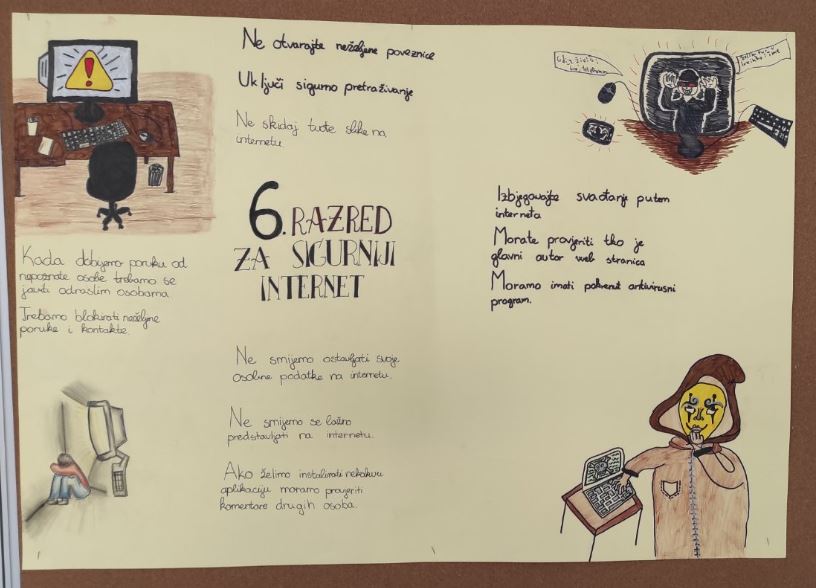 Ne otvarajte neželjene poveznice
Uključi sigurno pretraživanje
Ne skidaj tuđe slike na
internetu.
6. RAZRED
ZA SIGURNIJI
INTERNET
Kada dobijemo poruku od
nepoznate osobe trebamo se
javiti odraslim osobama.
Trebamo blokirati neželjene
poruke i kontakte.
Ne smijemo ostavljati svoje
osobne podatke na internetu.
Ne smijemo se lažno
predstavljati na internetu.
Ako želimo instalirati nekakvu
aplikaciju moramo provjeriti
komentare drugih osoba.
Izbjegavajte svađanje putem
interneta
Morate provjeriti tko je
glavni autor web stranica
Moramo imati pokrenut antivirusni
program.